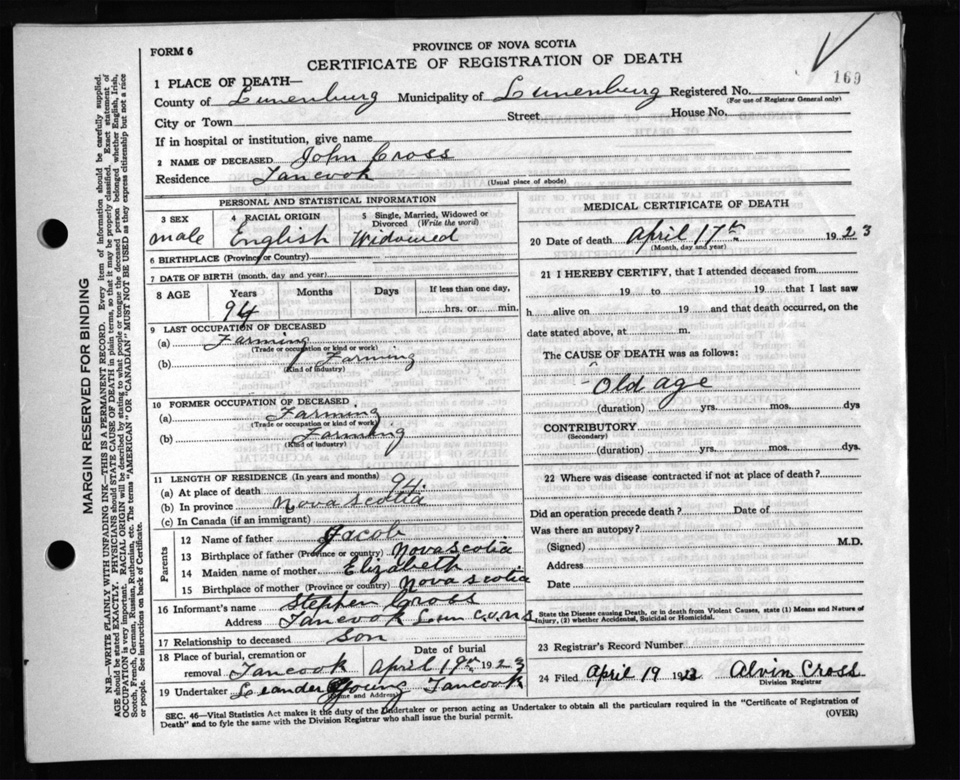 PROVINCE OF NOVA SCOTIA
FORM 6
CERTIFICATE OF REGISTRATION OF DEATH
169
1 PLACE OF DEATH—
County of Lunenburg Municipality of Lunenburg Registered No.
(For use of Registrar General only)
City or Town Street House No.
If in hospital or institution, give name
2 NAME OF DECEASED John Cross
Residence Tancook
(Usual place of abode)
PERSONAL AND STATISTICAL INFORMATION
3 SEX 4 RACIAL ORIGIN 5 Single, Married, Widowed or Divorced (Write the word)
male English Widowed
6 BIRTHPLACE (Province or Country)
7 DATE OF BIRTH (month, day and year)
8 AGE Years Months Days If less than one day,
94 hrs. or min.
9 LAST OCCUPATION OF DECEASED
(a) Farming
(Trade or occupation or kind of work)
(b) Farming
(Kind of industry)
10 FORMER OCCUPATION OF DECEASED
(a) Farming
(Trade or occupation or kind of work)
(b) Farming
(Kind of industry)
11 LENGTH OF RESIDENCE (In years and months)
(a) At place of death 94.
(b) In province Nova Scotia
(c) In Canada (if an immigrant)
Parents
12 Name of father Jacob
13 Birthplace of father (Province or country) Nova Scotia
14 Maiden name of mother Elizabeth
15 Birthplace of mother (Province or country) Nova Scotia
16 Informant's name Stephen Cross
Address Tancook Lun Co N S
17 Relationship to deceased Son
18 Place of burial, cremation or removal Tancook Date of burial April 19th 1923
19 Undertaker Leander Young Tancook
(Name and Address)
MEDICAL CERTIFICATE OF DEATH
20 Date of death April 17th 1923
(Month, day and year)
21 I HEREBY CERTIFY, that I attended deceased from
19 to 19 that I last saw
h alive on 19 and that death occurred, on the
date stated above, at m.
The CAUSE OF DEATH was as follows:
Old age
(duration) yrs. mos. dys
CONTRIBUTORY
(Secondary)
(duration) yrs. mos. dys.
22 Where was disease contracted if not at place of death?
Did an operation precede death? Date of
Was there an autopsy?
(Signed) M.D.
Address
Date
State the Disease causing Death, or in death from Violent Causes, state (1) Means and Nature of
Injury, (2) whether Accidental, Suicidal or Homicidal.
23 Registrar's Record Number
24 Filed April 19 1923 Alvin Cross
Division Registrar
SEC. 46—Vital Statistics Act makes it the duty of the Undertaker or person acting as Undertaker to obtain all the particulars required in the "Certificate of Registration of
Death" and to fyle the same with the Division Registrar who shall issue the burial permit.
(OVER)
MARGIN RESERVED FOR BINDING
N.B.—WRITE PLAINLY WITH UNFADING INK—THIS IS A PERMANENT RECORD. Every item of information should be carefully supplied.
AGE should be stated EXACTLY. PHYSICIANS should STATE CAUSE OF DEATH in plain terms, so that it may be properly classified. Exact statement of
OCCUPATION is very important. RACIAL ORIGIN will be described by stating to what people or tongue the deceased person belonged whether English, Irish,
Scotch, French, German, Russian, Ruthenian, etc. The terms "AMERICAN" OR "CANADIAN" MUST NOT BE USED as they express citizenship but not a race
or people. See instructions on back of Certificate.